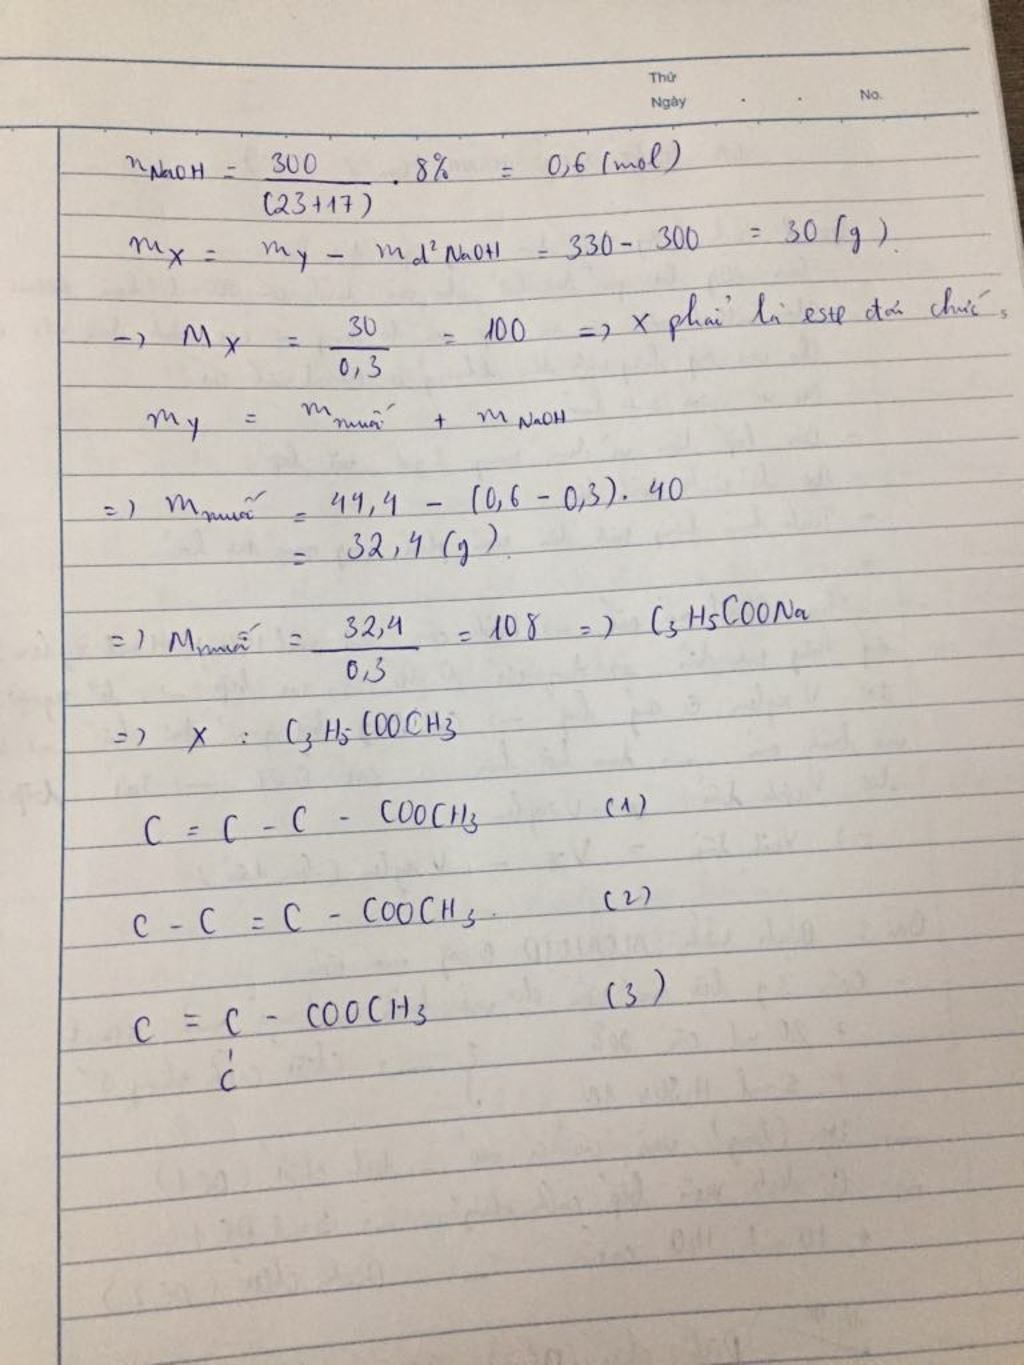 Thứ
Ngày . . No.
n NaOH = 300 / (23+17) . 8% = 0,6 (mol)
mX = mY - m d² NaOH = 330 - 300 = 30 (g).
→ MX = 30 / 0,3 = 100 => X phải là este đơn chức.
mY = m muối + m NaOH
=> m muối = 44,4 - (0,6 - 0,3). 40
= 32,4 (g).
=> M muối = 32,4 / 0,3 = 108 => C3H5COONa
=> X : C3H5COOCH3
C = C - C - COOCH3 (1)
C - C = C - COOCH3. (2)
C = C - COOCH3 (3)
C